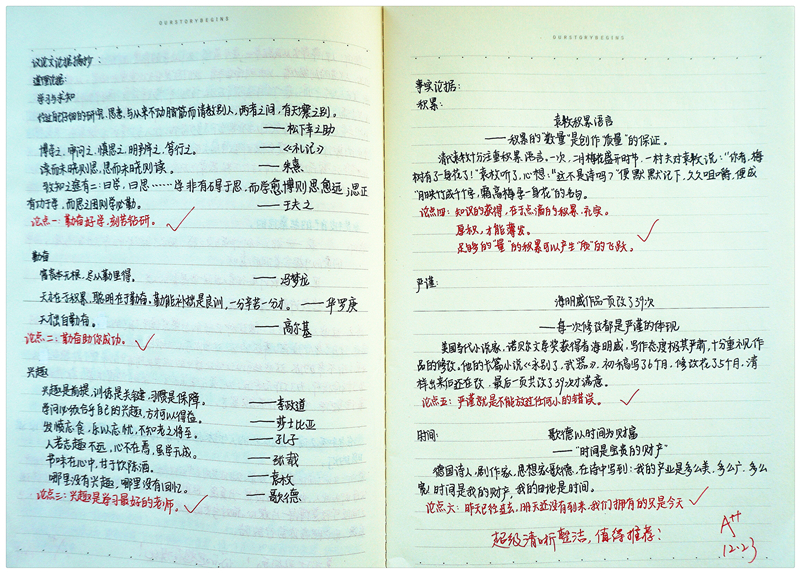 OURSTORYBEGINS
议论文论据摘抄：
道理论据：
学习与求知
作过自己仔细的研究、思考，与从来不动脑筋而请教别人，两者之间，有天壤之别。
——松下幸之助
博学之，审问之，慎思之，明辨之，笃行之。——《礼记》
读而未晓则思，思而未晓则读。——朱熹
致知之途有二：曰学，曰思……学非有碍于思，而学愈博则思愈远；思正
有功于学，而思之困则学必勤。——王夫之
论点一：勤奋好学，刻苦钻研。
勤奋
富贵本无根，尽从勤里得。——冯梦龙
天才在于积累，聪明在于勤奋，勤能补拙是良训，一分辛苦一分才。——华罗庚
天才出自勤奋。——高尔基
论点二：勤奋助你成功。
兴趣
兴趣是前提，训练是关键，习惯是保障。——李政道
学问必须合乎自己的兴趣，方才可以得益。——莎士比亚
发愤忘食，乐以忘忧，不知老之将至。——孔子
人若志趣不远，心不在焉，虽学无成。——张载
书味在心中，甘于饮陈酒。——袁枚
哪里没有兴趣，哪里没有回忆。——歌德
论点三：兴趣是学习最好的老师。
OURSTORYBEGINS
事实论据：
积累：
袁枚积累语言
——积累的"数量"是创作"质量"的保证。
清代袁枚十分注重积累语言。一次，二月梅花盛开时节，一村夫对袁枚说："你看，梅
树有了一身花了！"袁枚听了，心想："这不是诗吗？"便默默记下，久久咀嚼，便成
"月映竹成千个字，霜高梅孕一身花"的名句。
论点四：知识的获得，在于点滴的积累、充实。
厚积，才能薄发。
足够的"量"的积累可以产生"质"的飞跃。
严谨：
海明威作品一页改了39次
——每一次修改都是严谨的体现
美国当代小说家，诺贝尔文学奖获得者海明威，写作态度极其严肃，十分重视作
品的修改。他的长篇小说《永别了，武器》，初稿写了6个月，修改花了5个月，清
样出来仍还在改，最后一页共改了39次才满意。
论点五：严谨就是不能放过任何小的错误。
时间：
歌德以时间为财富
——"时间是宝贵的财产"
德国诗人，剧作家，思想家歌德，在诗中写到：我的产业是多么美，多么广，多么
宽！时间是我的财产，我的田地是时间。
论点六：昨天已经过去，明天还没有到来，我们拥有的只是今天
超级清晰整洁，值得推荐！
A++
12.23